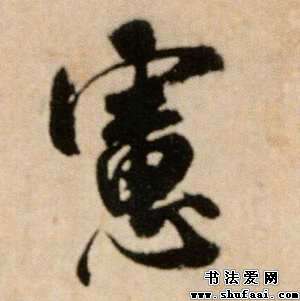 憲
书法爱网
www.shufaai.com